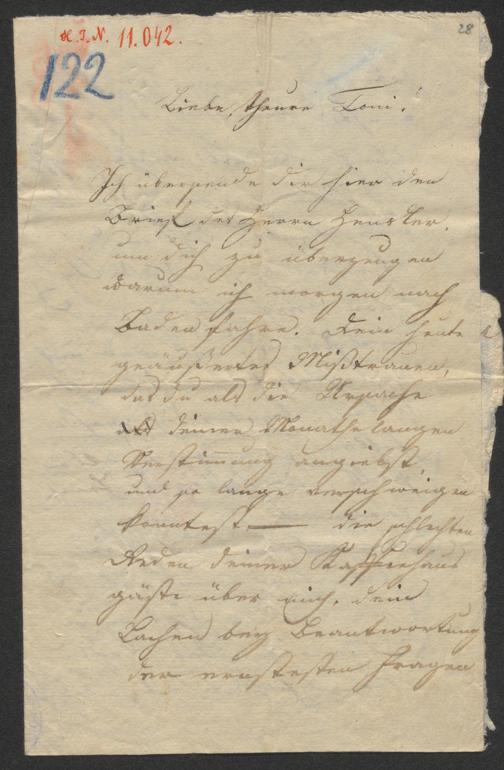 28
H.I.N. 11.042.
122
Liebe, theure Toni!
Ich übersende dir hier den
Brief des Herrn Hensler,
um dich zu überzeugen
warum ich morgen nach
Baden fahre. Dein heute
geäußertes Mißtrauen,
das du als die Ursache
deiner Monathe langen
Verstimmung angiebst,
und so lange verschweigen
konntest — die schlechten
Reden deiner Kaffeehaus
gäste über mich, dein
Lachen bey Beantwortung
der ernstesten Fragen